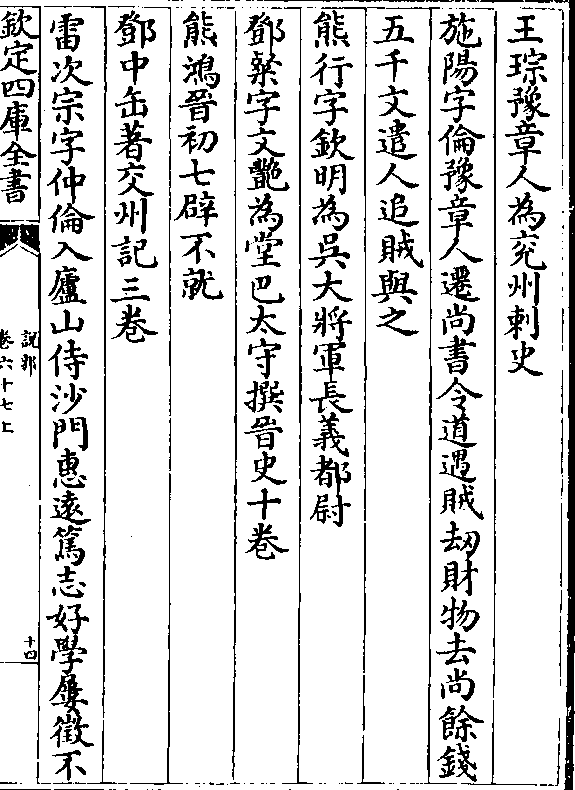 王琮豫章人為兖州刺史
施陽字倫豫章人遷尚書令道遇賊刼財物去尚餘錢
五千文遣人追賊與之
熊行字欽明為吳大將軍長義都尉
鄧粲字文艷為堂巴太守撰晉史十卷
熊鴻晉初七辟不就
鄧中缶著交州記三卷
雷次宗字仲倫入廬山侍沙門惠遠篤志好學屢徵不
欽定四庫全書
說郛
卷六十七上
十四